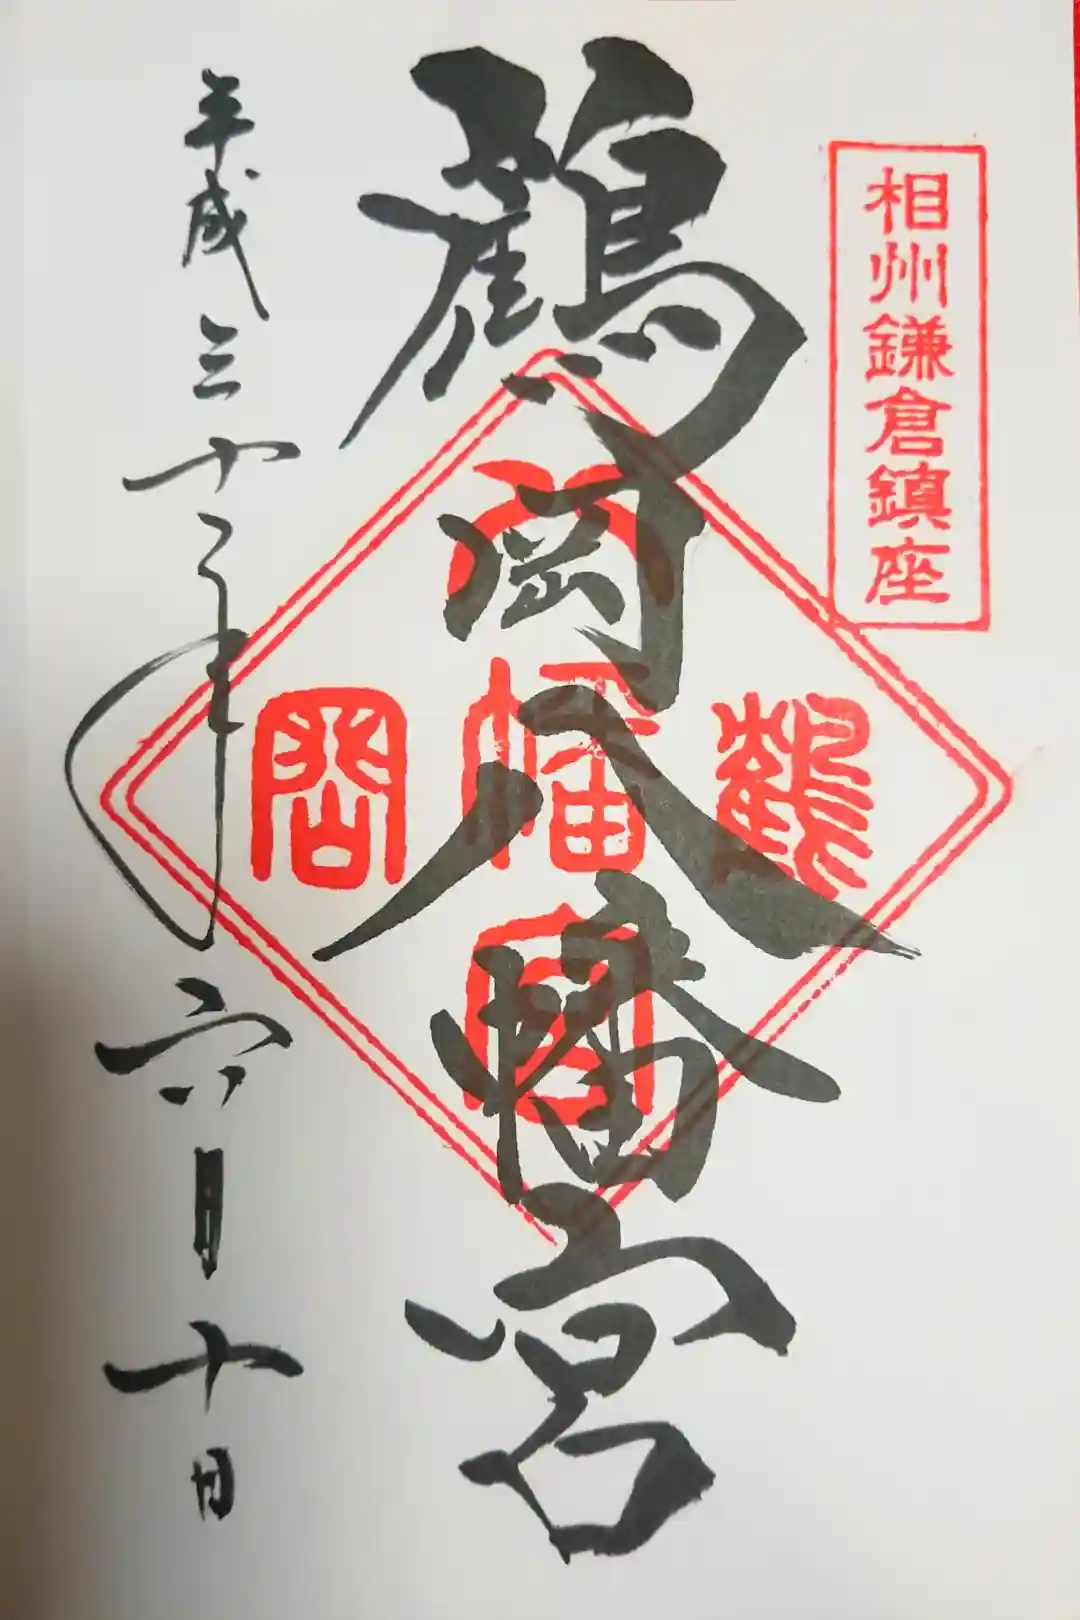 相州鎌倉鎮座
鶴岡八幡宮
鶴岡八幡宮
平成三十年六月十日